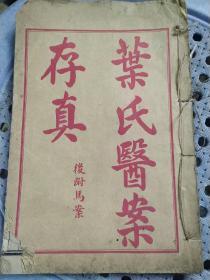 葉氏醫案
存真
後附馬案